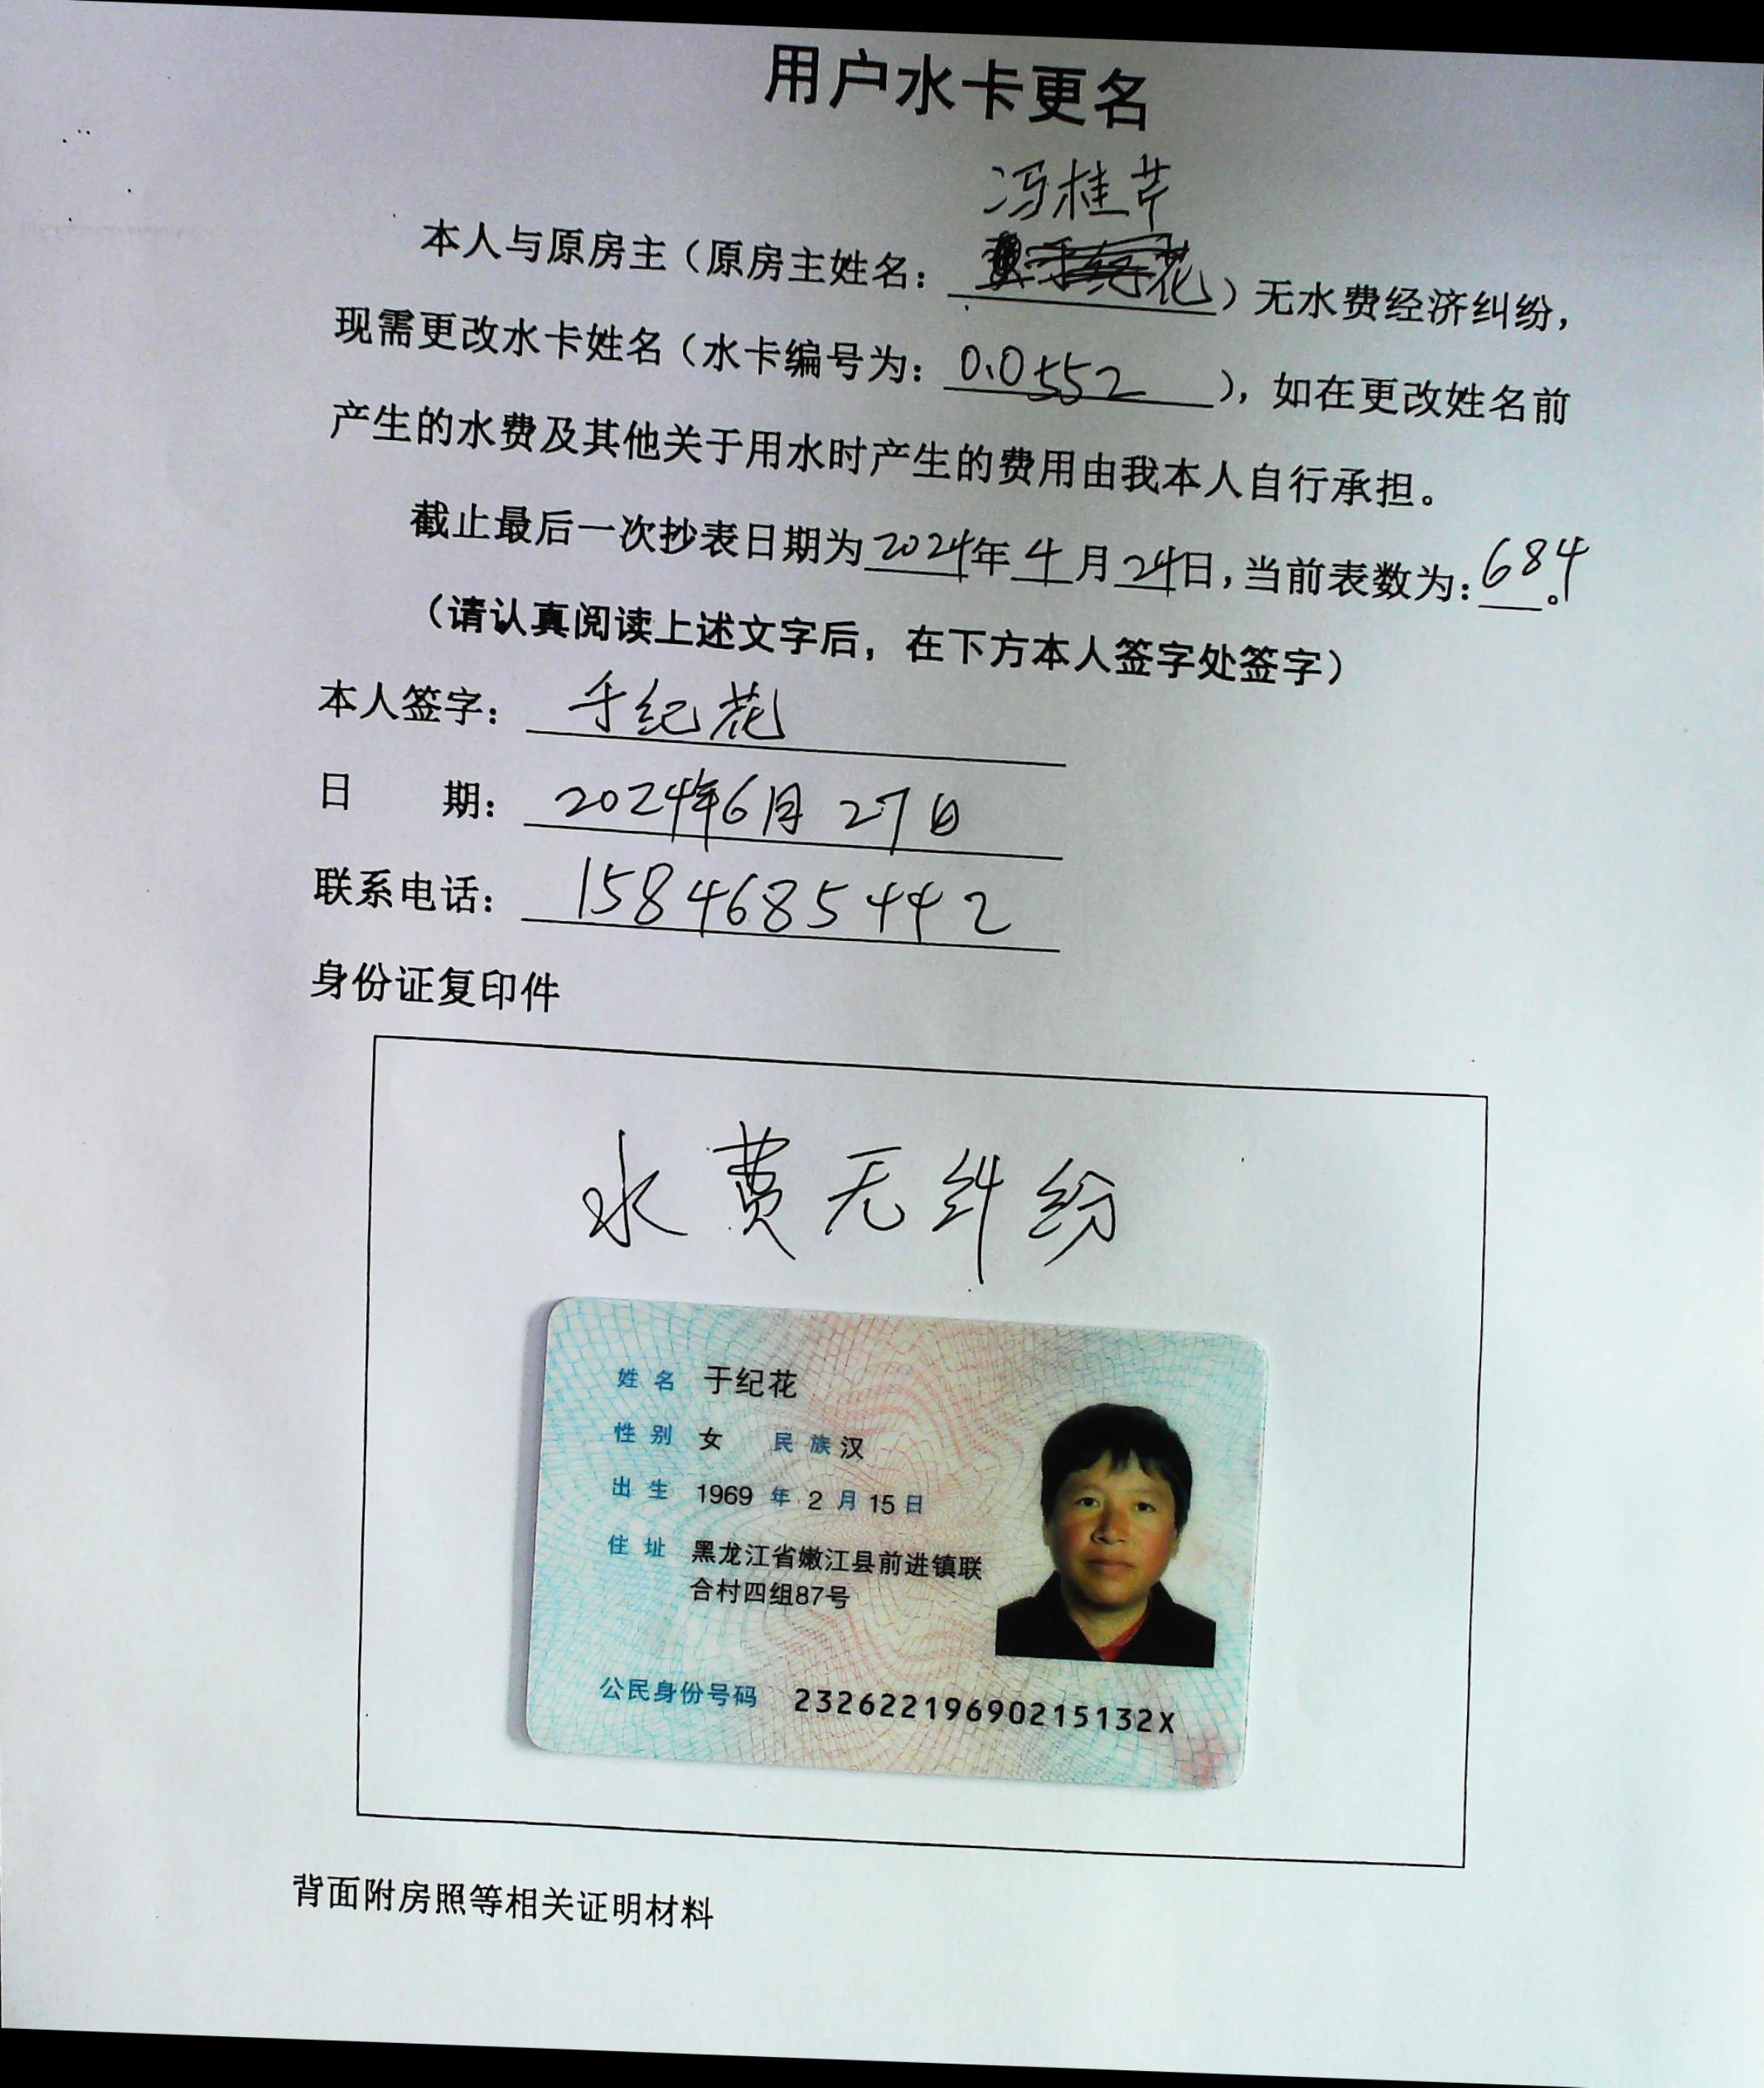 用户水卡更名
冯桂芹
本人与原房主（原房主姓名：花）无水费经济纠纷，
现需更改水卡姓名（水卡编号为：0.0552），如在更改姓名前
产生的水费及其他关于用水时产生的费用由我本人自行承担。
截止最后一次抄表日期为2024年4月24日，当前表数为：684。
（请认真阅读上述文字后，在下方本人签字处签字）
本人签字：于纪花
日期：2024年6月27日
联系电话：15846854442
身份证复印件
水费无纠纷
姓名 于纪花
性别 女 民族 汉
出生 1969 年 2 月 15 日
住址 黑龙江省嫩江县前进镇联
合村四组87号
公民身份号码 23262219690215132X
背面附房照等相关证明材料